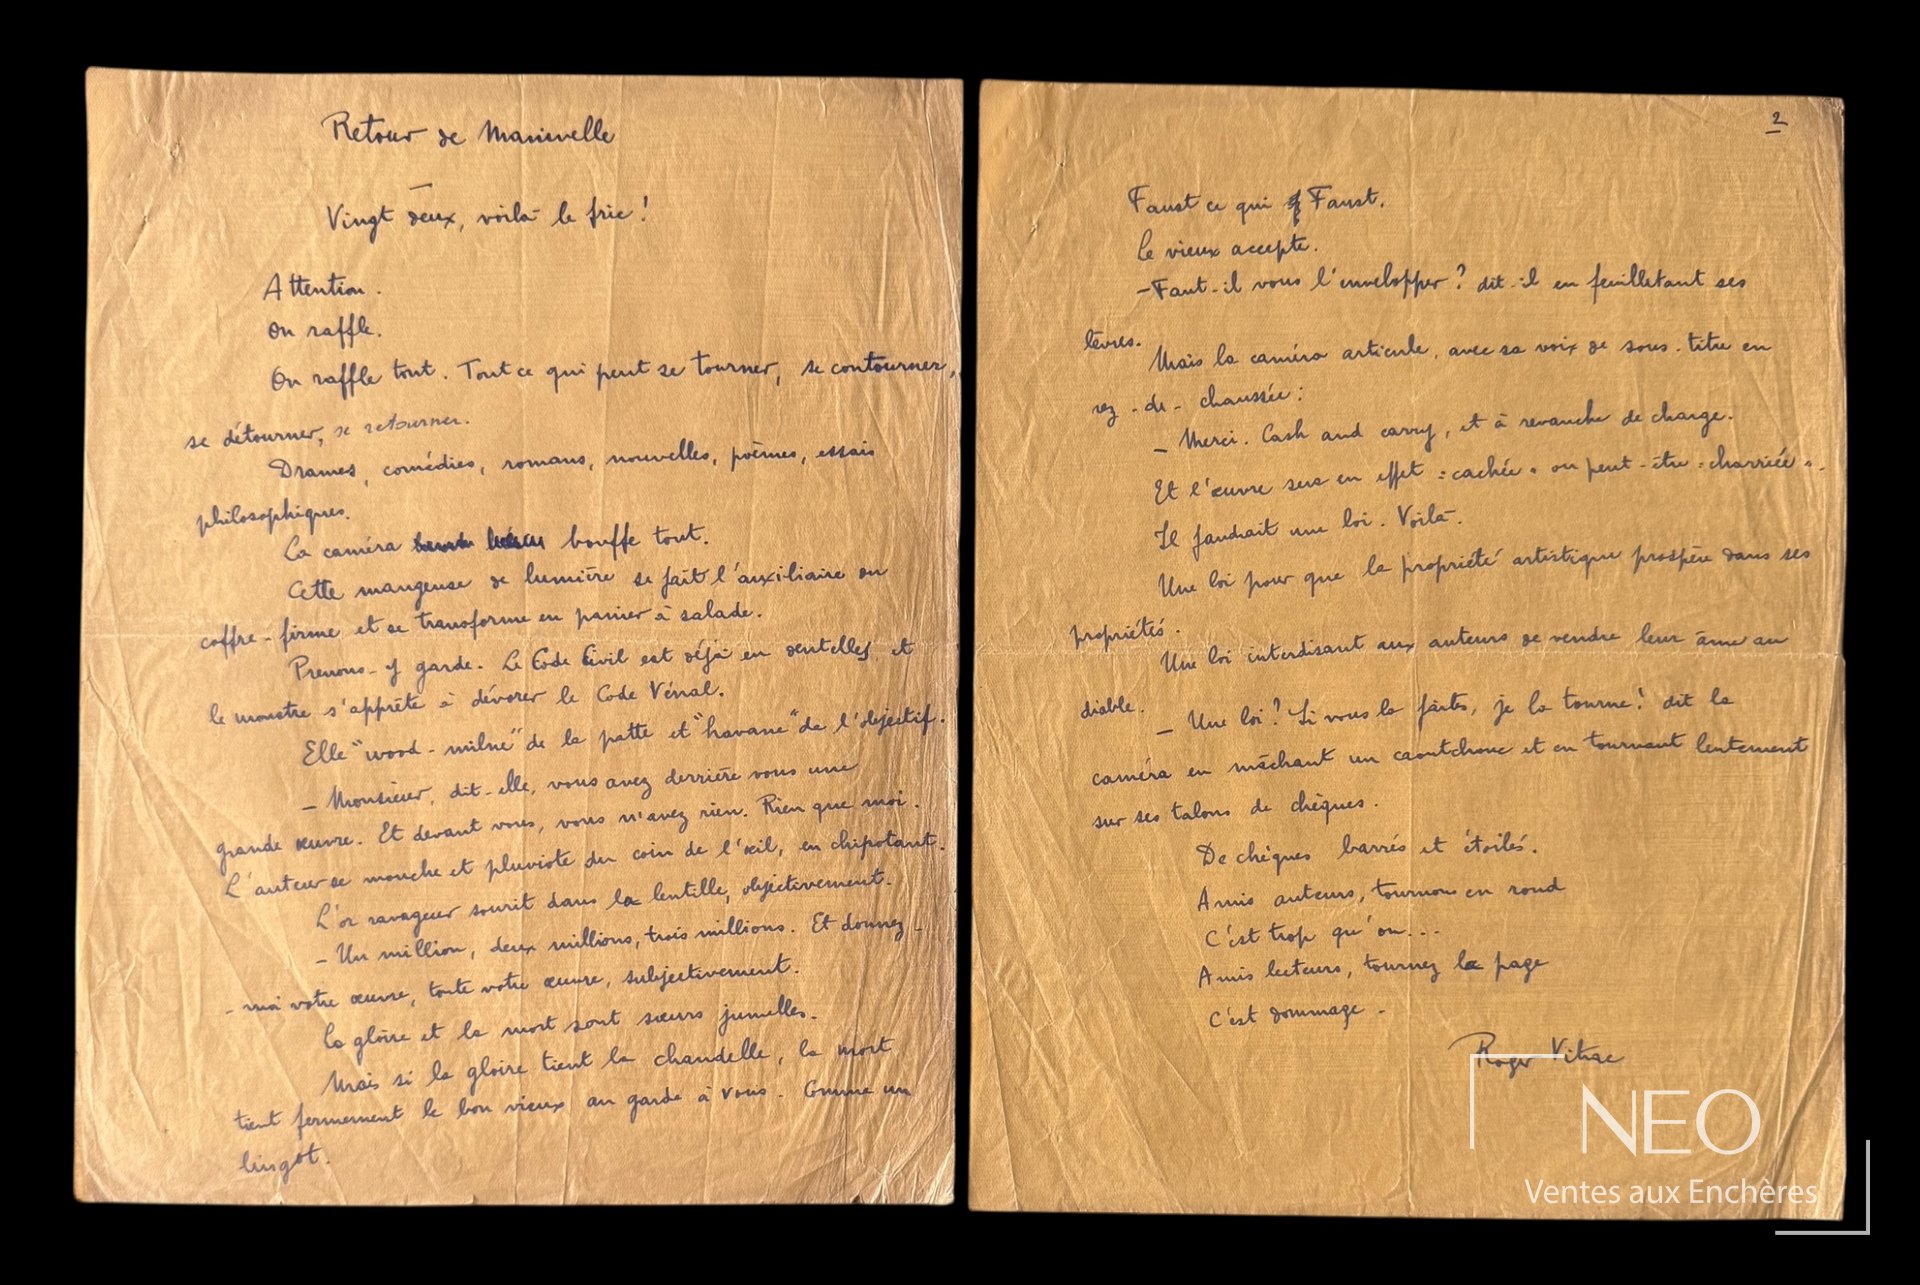 Retour de Manivelle
Vingt deux, voilà le fric !
Attention.
On raffle.
On raffle tout. Tout ce qui peut se tourner, se contourner,
se détourner, se retourner.
Drames, comédies, romans, nouvelles, poèmes, essais
philosophiques.
La caméra bouffe tout.
Cette mangeuse de lumière se fait l'auxiliaire du
coffre-firme et se transforme en panier à salade.
Prenons-y garde. Le Code Civil est déjà en dentelles et
le monstre s'apprête à dévorer le Code Vénal.
Elle "wood-milne" de la patte et "havane" de l'objectif.
— Monsieur, dit-elle, vous avez derrière vous une
grande œuvre. Et devant vous, vous n'avez rien. Rien que moi.
L'auteur se mouche et pluviote du coin de l'œil, en chipotant.
L'or ravageur sourit dans la lentille, objectivement.
— Un million, deux millions, trois millions. Et donnez-
-moi votre œuvre, toute votre œuvre, subjectivement.
La gloire et la mort sont sœurs jumelles.
Mais si la gloire tient la chandelle, la mort
tient fermement le bon vieux au garde à vous. Comme un
lingot.
2
Faust ce qui Faust.
Le vieux accepte.
— Faut-il vous l'envelopper ? dit-il en feuilletant ses
lèvres.
Mais la caméra articule, avec sa voix de sous-titre en
rez-de-chaussée :
— Merci. Cash and carry, et à revanche de charge.
Et l'œuvre sera en effet "cachée" ou peut-être "charriée".
Il faudrait une loi. Voilà.
Une loi pour que la propriété artistique prospère dans ses
propriétés.
Une loi interdisant aux auteurs de vendre leur âme au
diable.
— Une loi ? Si vous la faites, je la tourne ! dit la
caméra en mâchant un caoutchouc et en tournant lentement
sur ses talons de chèques.
De chèques barrés et étoilés.
Amis auteurs, tournons en rond
C'est trop qu'on...
Amis lecteurs, tournez la page
C'est dommage.
Roger Vitrac
NEO
Ventes aux Enchères